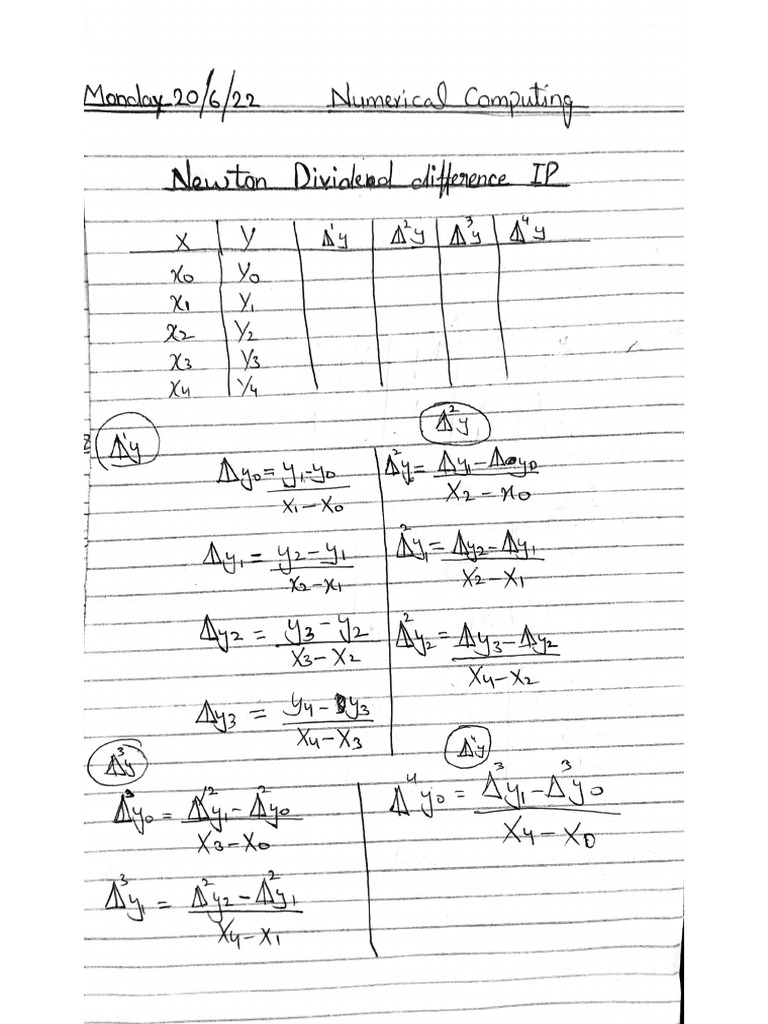 Monday 20/6/22 Numerical Computing
Newton Dividend difference IP
x y Δ¹y Δ²y Δ³y Δ⁴y
x₀ y₀
x₁ y₁
x₂ y₂
x₃ y₃
x₄ y₄
Δ¹y
Δy₀ = y₁-y₀ / x₁-x₀
Δy₁ = y₂-y₁ / x₂-x₁
Δy₂ = y₃-y₂ / x₃-x₂
Δy₃ = y₄-y₃ / x₄-x₃
Δ²y
Δ²y₀ = Δy₁-Δy₀ / x₂-x₀
Δ²y₁ = Δy₂-Δy₁ / x₂-x₁
Δ²y₂ = Δy₃-Δy₂ / x₄-x₂
Δ³y
Δ³y₀ = Δ²y₁-Δ²y₀ / x₃-x₀
Δ³y₁ = Δ²y₂-Δ²y₁ / x₄-x₁
Δ⁴y
Δ⁴y₀ = Δ³y₁-Δ³y₀ / x₄-x₀